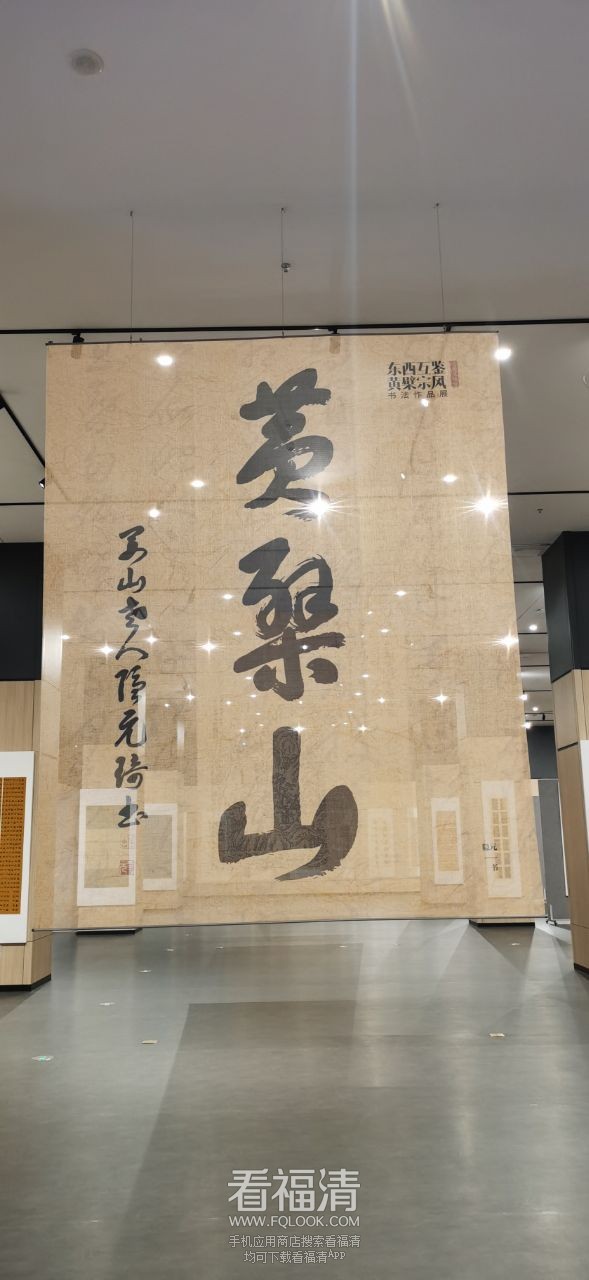 东西互鉴
黄檗宗风
书法作品展
黄檗山
黄山老人隐元琦书
隐元
书
看福清
WWW.FQLOOK.COM
手机应用商店搜索看福清
均可下载看福清APP